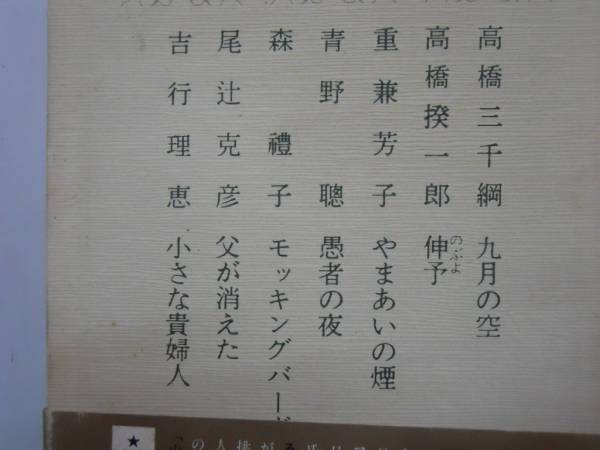 高橋三千綱 九月の空
高橋揆一郎 伸予
のぶよ
重兼芳子 やまあいの煙
青野聰 愚者の夜
森禮子 モッキングバード
尾辻克彦 父が消えた
吉行理恵 小さな貴婦人